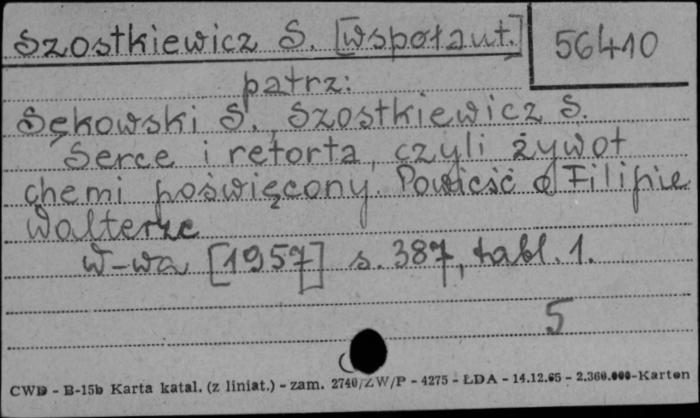 Szostkiewicz S. [współaut.]
56410
patrz:
Sękowski S., Szostkiewicz S.
Serce i retorta, czyli żywot
chemi poświęcony. Powieść o Filipie
Walterze
W-wa [1957] s. 387, tabl. 1.
5
CWD - B-15b Karta katal. (z liniat.) - zam. 2740/ZW/P - 4275 - ŁDA - 14.12.65 - 2.360.000-Karton